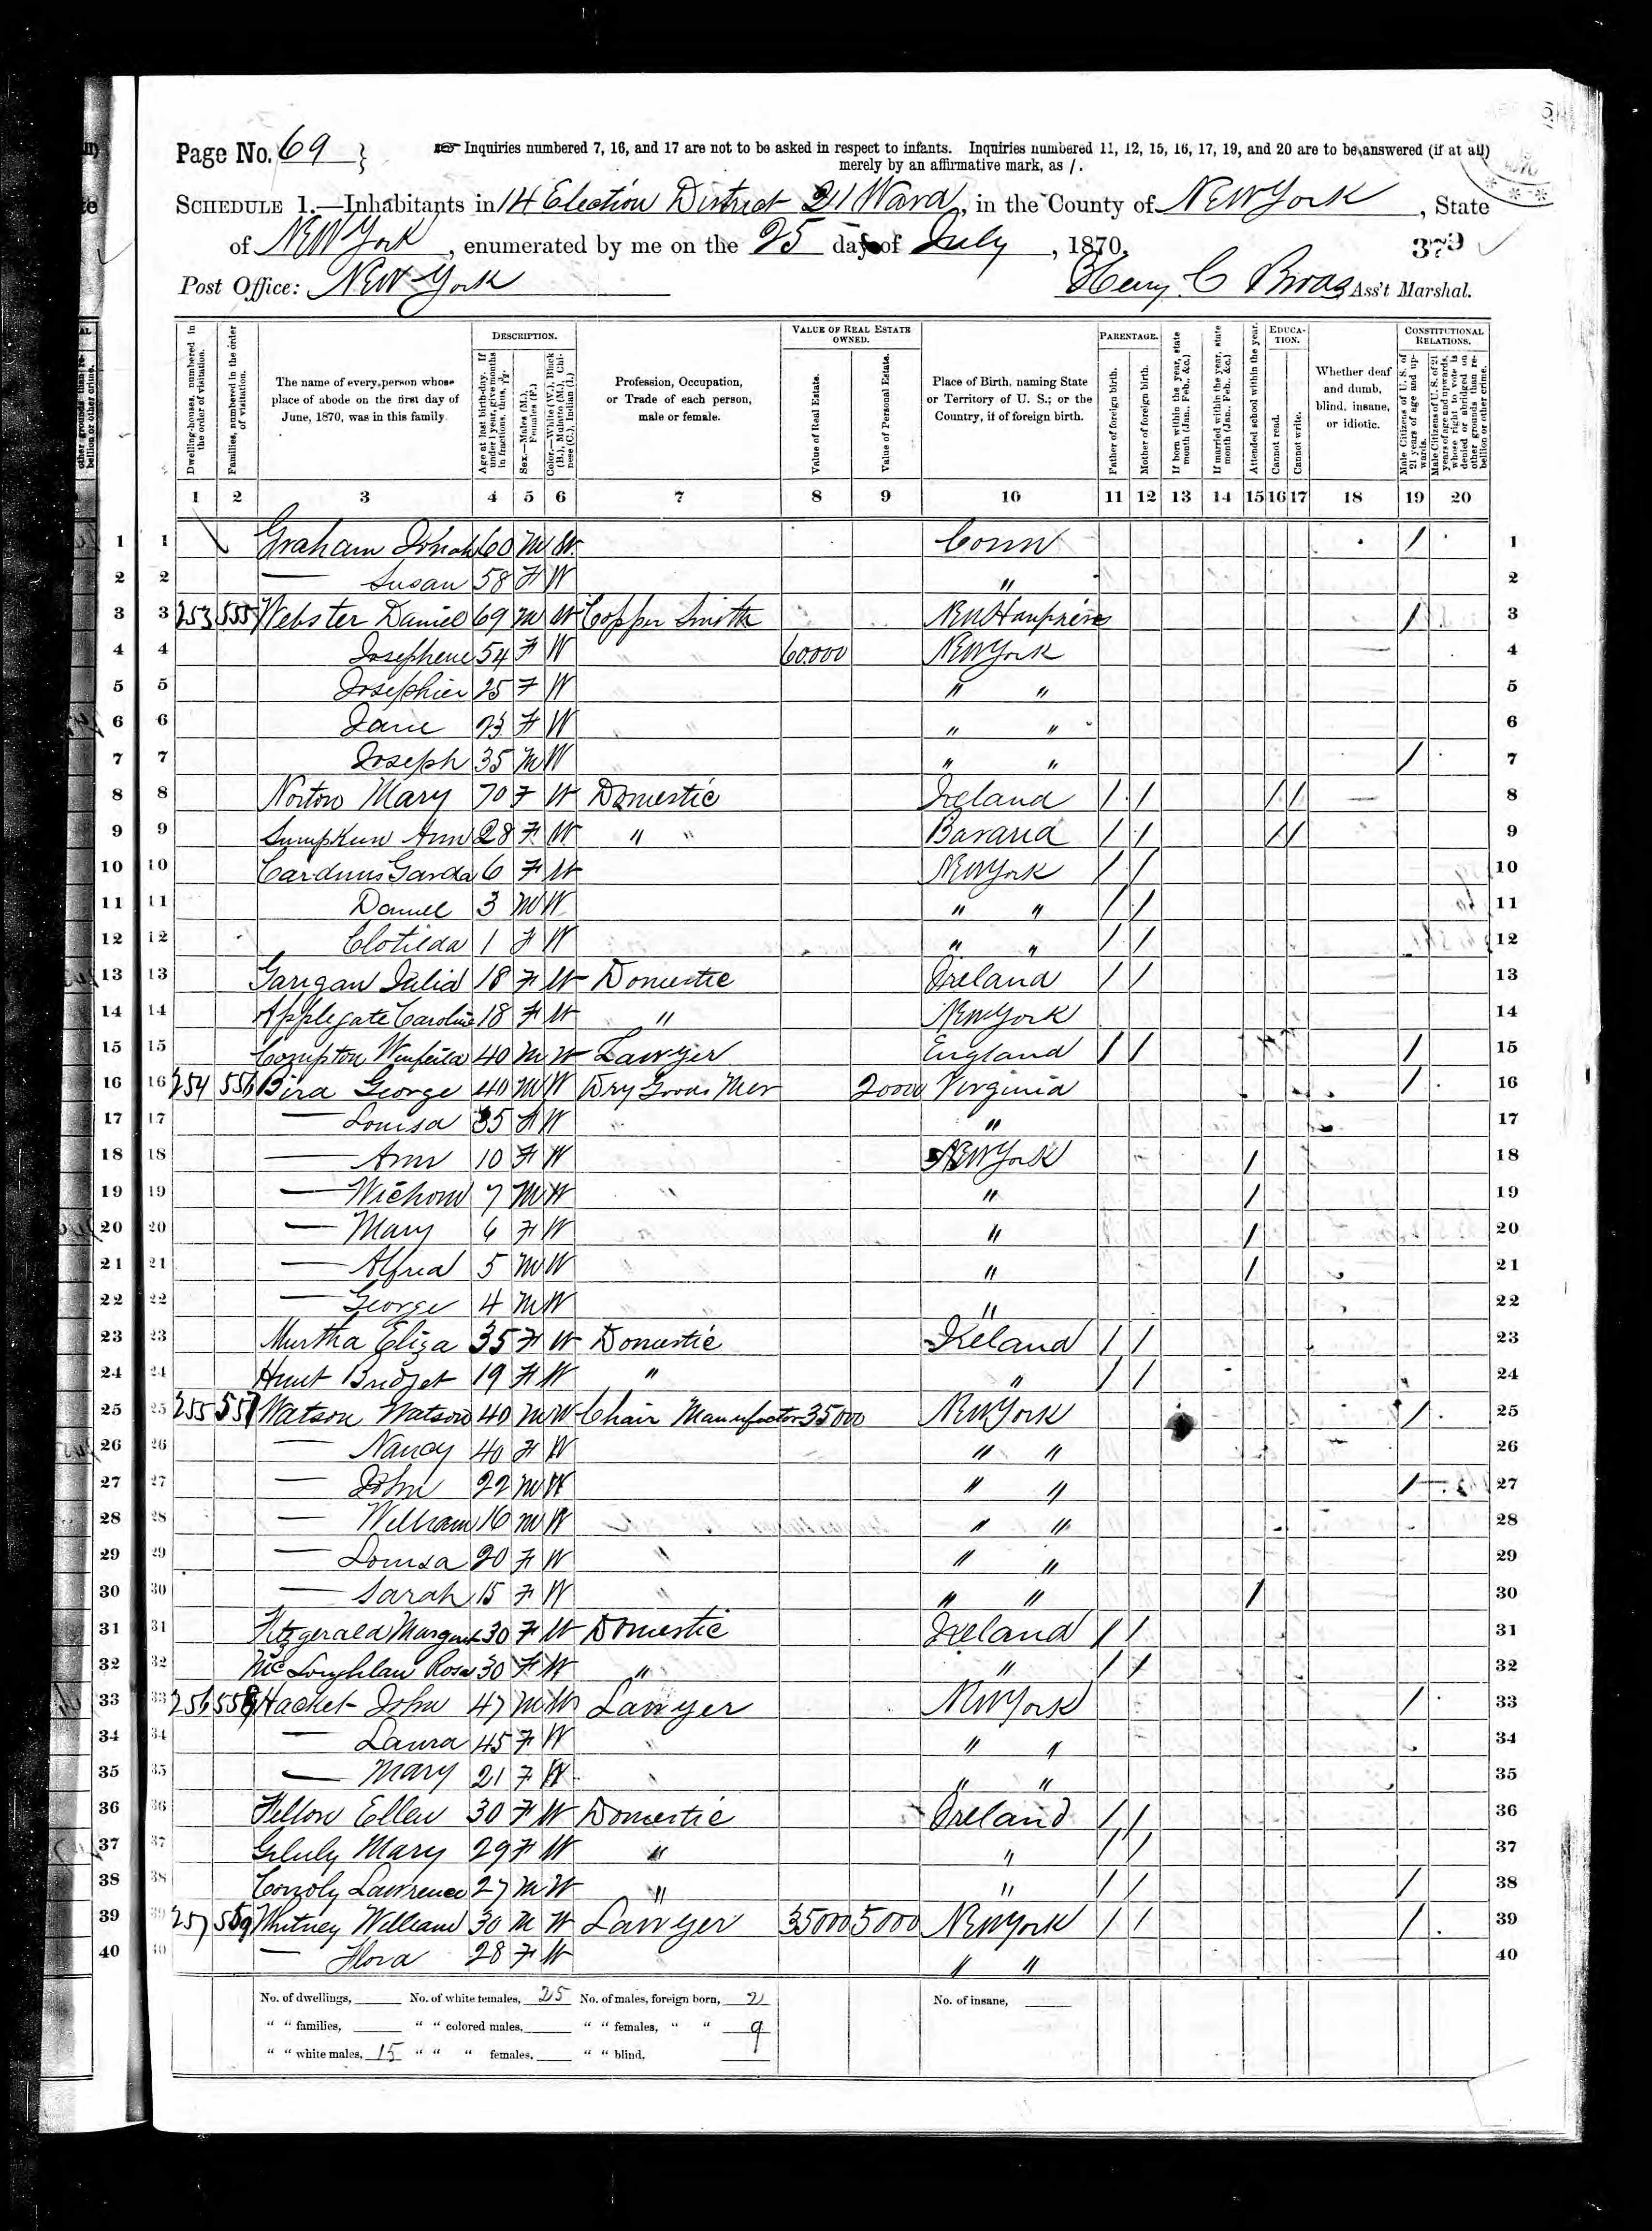 Page No. 69 }
Inquiries numbered 7, 16, and 17 are not to be asked in respect to infants. Inquiries numbered 11, 12, 15, 16, 17, 19, and 20 are to be answered (if at all)
merely by an affirmative mark, as /.
SCHEDULE 1.—Inhabitants in 14 Election District 21 Ward, in the County of New York, State
of New York, enumerated by me on the 25 day of July, 1870.
379
Post Office: New York
Henry C Ass't Marshal.
Dwelling-houses, numbered in the order of visitation.
Families, numbered in the order of visitation.
The name of every person whose place of abode on the first day of June, 1870, was in this family.
DESCRIPTION.
Age at last birth-day. If under 1 year, give months in fractions, thus, 3/12.
Sex.—Males (M.), Females (F.)
Color.—White (W.), Black (B.), Mulatto (M.), Chinese (C.), Indian (I.)
Profession, Occupation, or Trade of each person, male or female.
VALUE OF REAL ESTATE OWNED.
Value of Real Estate.
Value of Personal Estate.
Place of Birth, naming State or Territory of U. S.; or the Country, if of foreign birth.
PARENTAGE.
Father of foreign birth.
Mother of foreign birth.
If born within the year, state month (Jan., Feb., &c.)
If married within the year, state month (Jan., Feb., &c.)
Attended school within the year.
EDUCATION.
Cannot read.
Cannot write.
Whether deaf and dumb, blind, insane, or idiotic.
CONSTITUTIONAL RELATIONS.
Male Citizens of U. S. of 21 years of age and upwards.
Male Citizens of U. S. of 21 years of age and upwards, whose right to vote is denied or abridged on other grounds than rebellion or other crime.
1 2 3 4 5 6 7 8 9 10 11 12 13 14 15 16 17 18 19 20
1 Graham 60 M W Conn / 1
2 — Susan 58 F W " 2
3 253 555 Webster Daniel 69 M W Copper Smith / 3
4 Josephene 54 F W 60.000 New York 4
5 25 F W " " 5
6 Jane 23 F W " " 6
7 Joseph 35 M W " " / 7
8 Norton Mary 70 F W Domestic Ireland / / / / 8
9 Ann 28 F W " " Bavaria / / / / 9
10 6 F W New York / / 10
11 Daniel 3 M W " " / / 11
12 Clotilda 1 F W " " / / 12
13 Garigan Julia 18 F W Domestic Ireland / / 13
14 Applegate Caroline 18 F W " New York 14
15 Compton 40 M W Lawyer England / / / 15
16 254 556 Bird George 40 M W Dry Goods Mer 20000 Virginia / 16
17 — Louisa 35 F W " 17
18 — Ann 10 F W New York / 18
19 — 7 M W " / 19
20 — Mary 6 F W " / 20
21 — Alfred 5 M W " / 21
22 — George 4 M W " 22
23 Murtha Eliza 35 F W Domestic Ireland / / 23
24 Hunt Bridget 19 F W " " / / 24
25 255 557 Watson Watson 40 M W Chair Manufactor 35000 New York / 25
26 — Nancy 40 F W " " 26
27 — John 22 M W " " / 27
28 — William 16 M W " " 28
29 — Louisa 20 F W " " 29
30 — Sarah 15 F W " " / 30
31 Fitzgerald Margaret 30 F W Domestic Ireland / / 31
32 McLoughlan Rosa 30 F W " " / / 32
33 256 558 Hacket John 47 M W Lawyer New York / 33
34 — Laura 45 F W " " 34
35 — Mary 21 F W " " 35
36 Ellen 30 F W Domestic Ireland / / 36
37 Mary 29 F W " " / / 37
38 Lawrence 27 M W " " / / / 38
39 257 559 Whitney William 30 M W Lawyer 35000 5000 New York / / / 39
40 — Flora 28 F W " " 40
No. of dwellings, No. of white females, 25 No. of males, foreign born, 2 No. of insane,
" " families, " " colored males, " " females, " " 9
" " white males, 15 " " " females, " " blind,